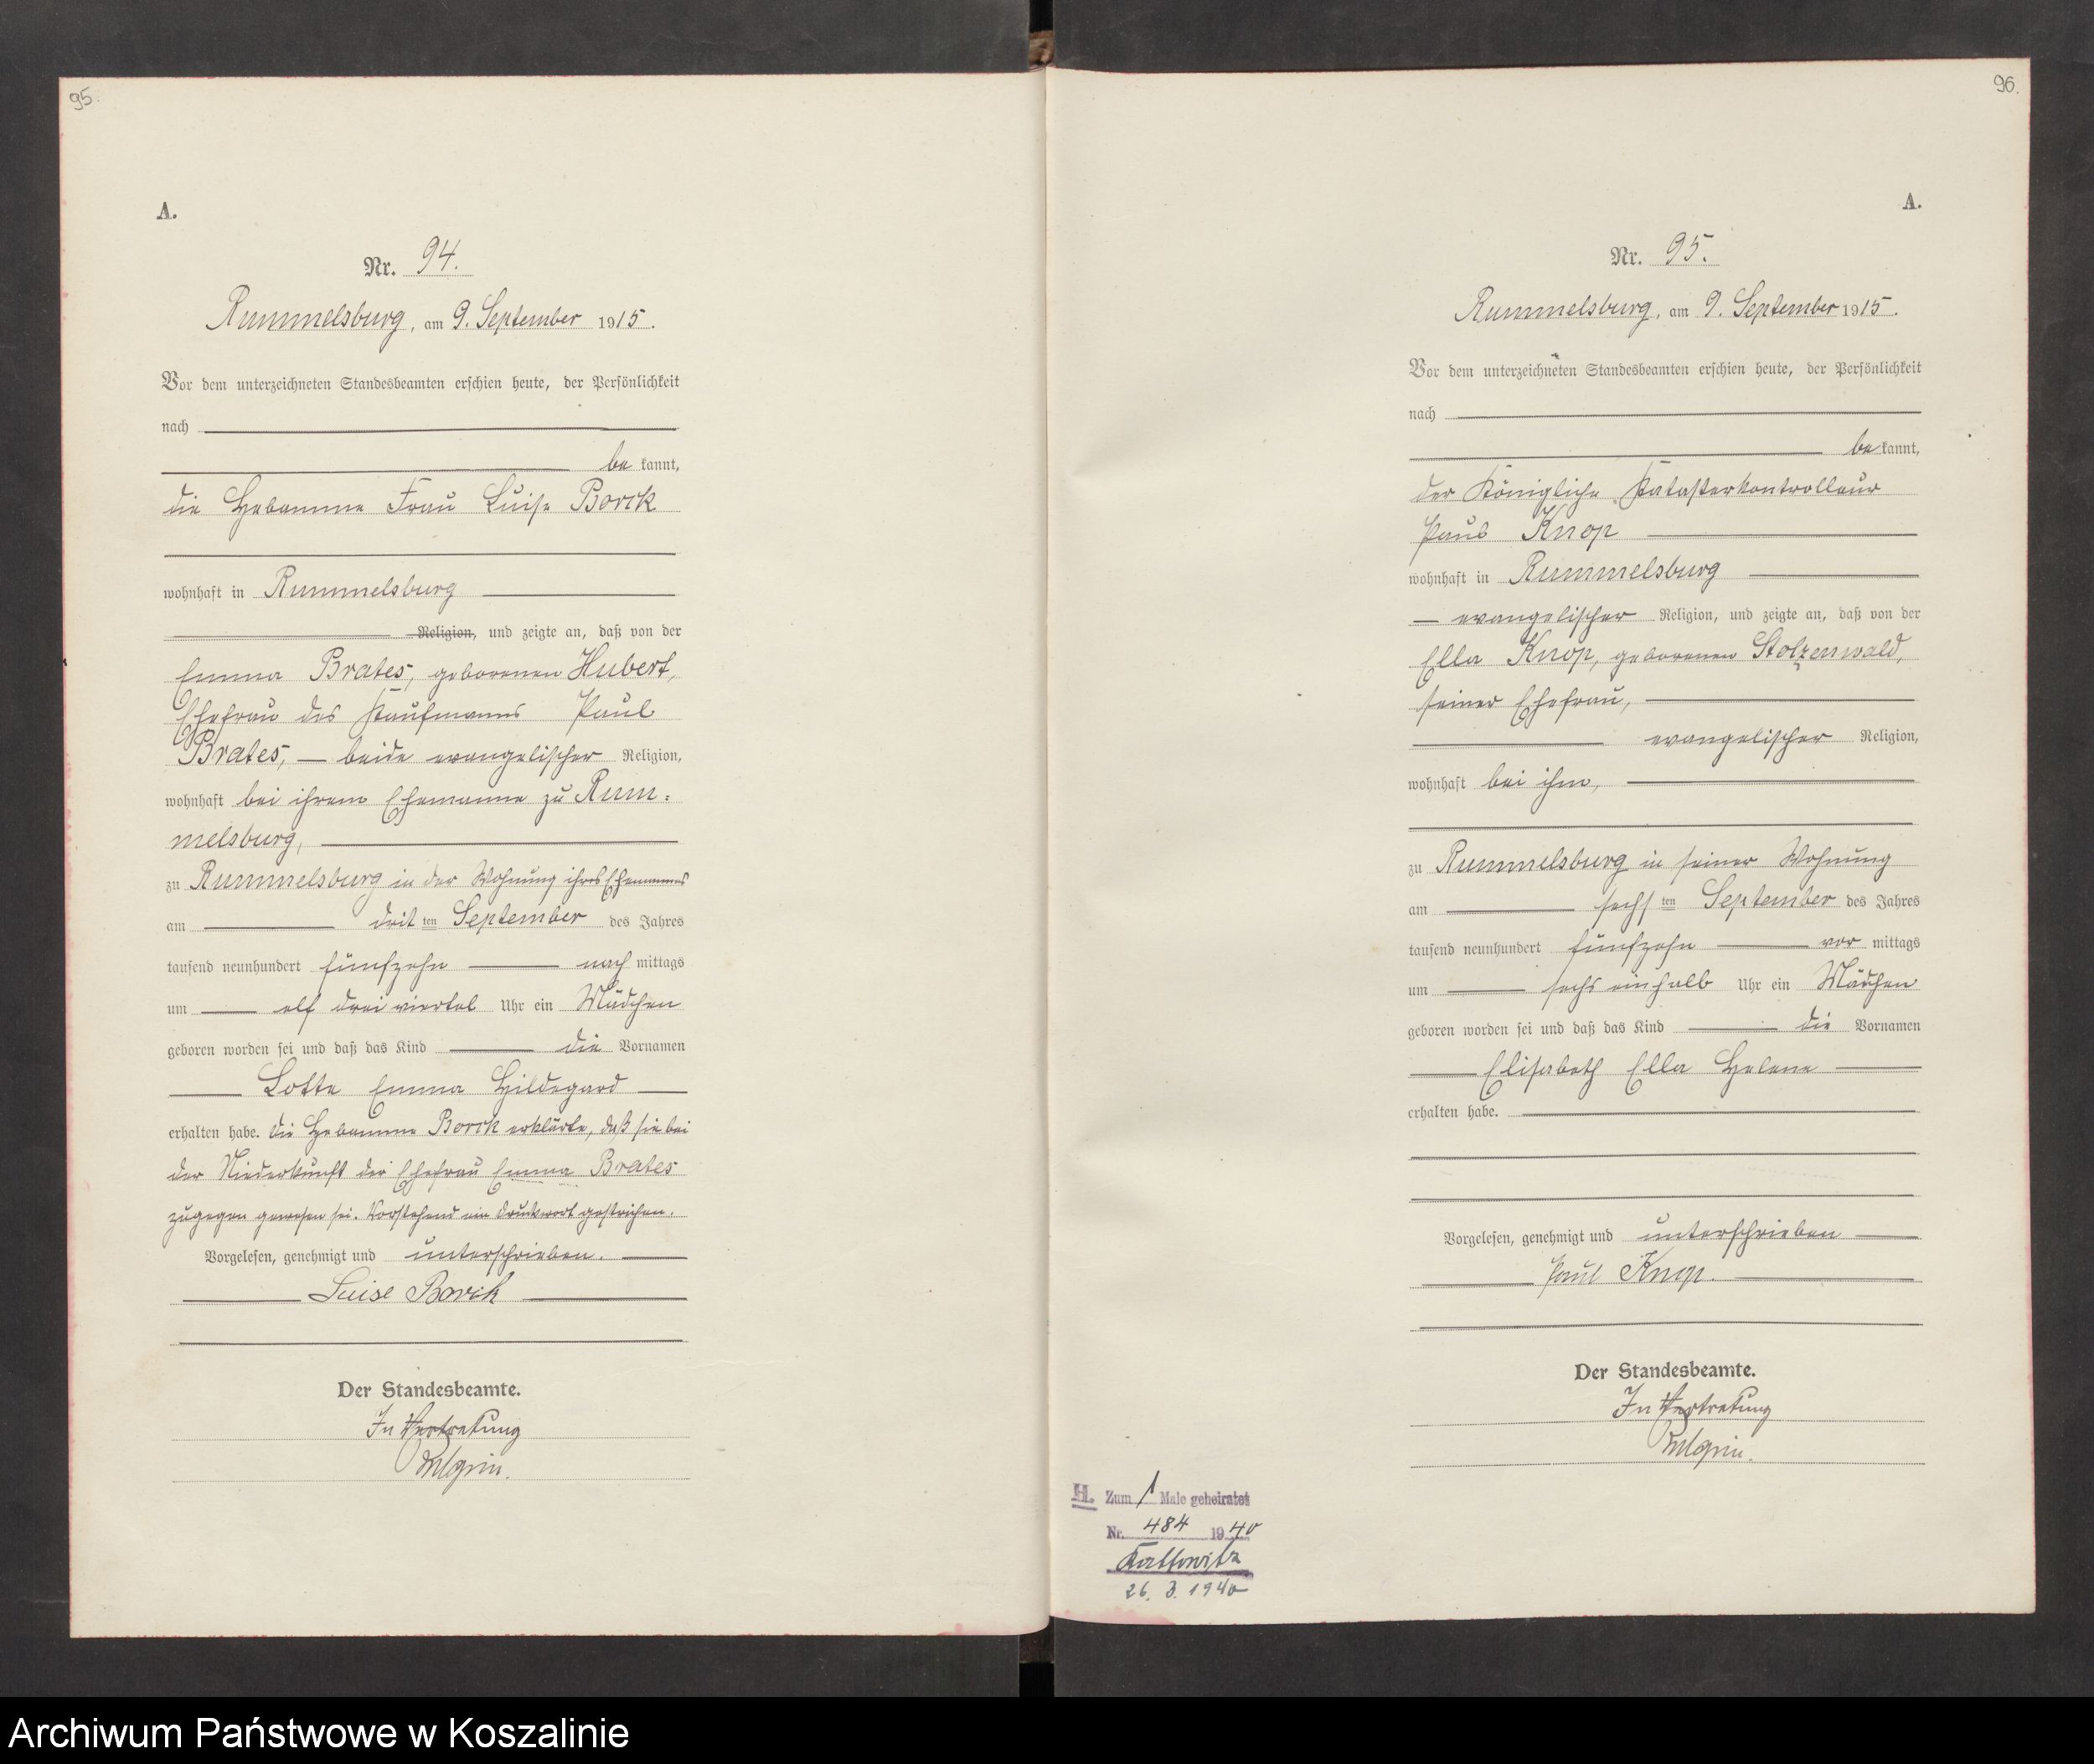 95.
A.
Nr. 94.
Rummelsburg, am 9. September 1915.
Vor dem unterzeichneten Standesbeamten erschien heute, der Persönlichkeit
nach
be kannt,
die Hebamme Frau Luise Borck
wohnhaft in Rummelsburg
Religion, und zeigte an, daß von der
Emma Brates, geborenen Hubert,
Ehefrau des Kaufmanns Paul
Brates, — beide evangelischer Religion,
wohnhaft bei ihrem Ehemanne zu Rum-
melsburg,
zu Rummelsburg in der Wohnung ihres Ehemannes
am dritten September des Jahres
tausend neunhundert fünfzehn nachmittags
um elf drei viertel Uhr ein Mädchen
geboren worden sei und daß das Kind die Vornamen
Lotte Emma Hildegard
erhalten habe. Die Hebamme Borck erklärte, daß sie bei
der Niederkunft der Ehefrau Emma Brates
zugegen gewesen sei. Vorstehend ein Druckwort gestrichen.
Vorgelesen, genehmigt und unterschrieben.
Luise Borck
Der Standesbeamte.
In Vertretung
96.
A.
Nr. 95.
Rummelsburg, am 9. September 1915.
Vor dem unterzeichneten Standesbeamten erschien heute, der Persönlichkeit
nach
be kannt,
der Königliche Katasterkontrolleur
Paul Knop
wohnhaft in Rummelsburg
— evangelischer Religion, und zeigte an, daß von der
Ella Knop, geborenen Stolzenwald,
seiner Ehefrau,
evangelischer Religion,
wohnhaft bei ihm,
zu Rummelsburg in seiner Wohnung
am sechsten September des Jahres
tausend neunhundert fünfzehn vormittags
um sechs einhalb Uhr ein Mädchen
geboren worden sei und daß das Kind die Vornamen
Elisabeth Ella Helene
erhalten habe.
Vorgelesen, genehmigt und unterschrieben
Paul Knop.
Der Standesbeamte.
In Vertretung
H. Zum 1 Male geheiratet
Nr. 484 1940
Kattowitz
26. 3. 1940
Archiwum Państwowe w Koszalinie